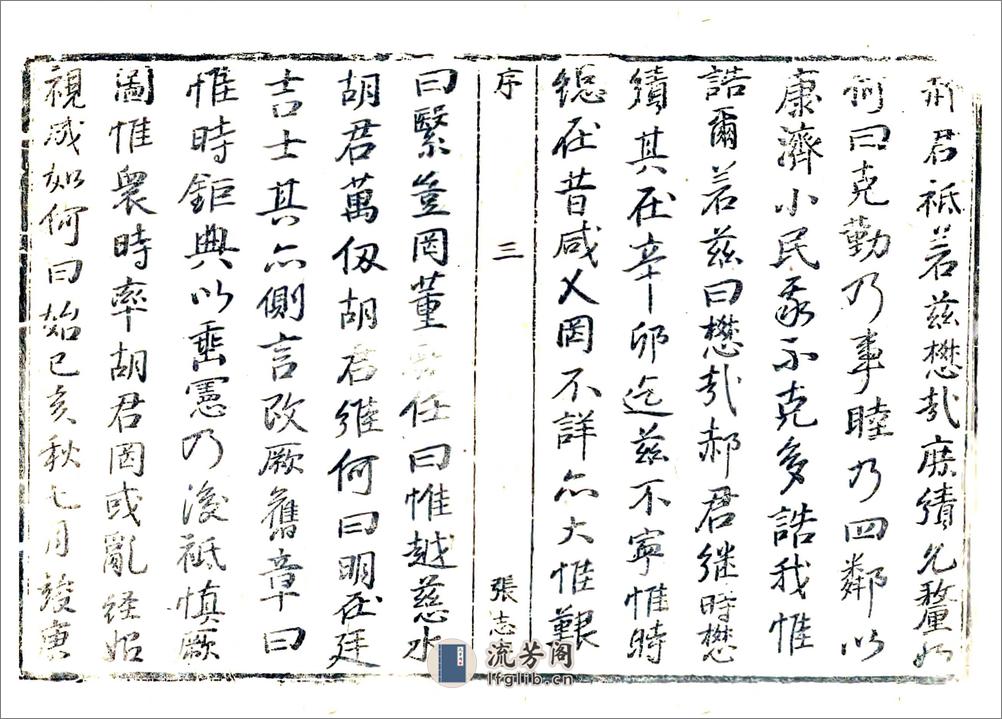 君祗若兹懋哉庶績允釐如
何曰克勤乃事睦乃四鄰以
康濟小民予不克多誥我惟
誥爾若兹曰懋哉郝君繼時懋
績其在辛卯迄兹不寧惟時
總在昔咸乂罔不詳亦大惟艱
序
三
張志
曰繄豈罔董任曰惟越慈水
胡君萬伋胡君維何曰明在廷
吉士其亦側言改厥舊章曰
惟時鉅典以垂憲乃後祗慎厥
圖惟衆時率胡君罔或亂經始
視成如何曰始己亥秋七月竣庚
流芳阁
lfglib.cn